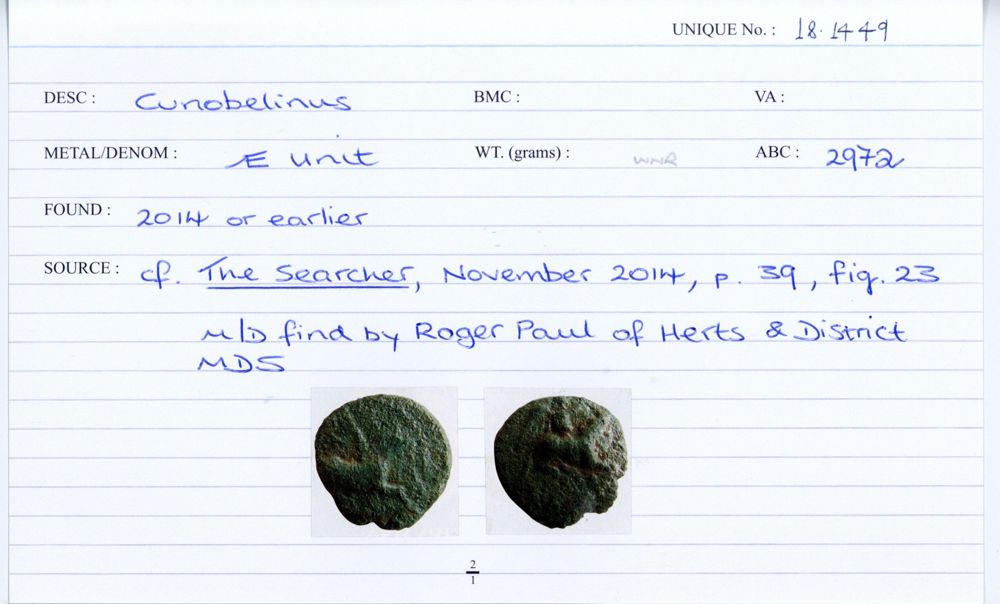 UNIQUE No. : 18.1449
DESC : Cunobelinus BMC : VA :
METAL/DENOM : Æ Unit WT. (grams) : WNR ABC : 2972
FOUND : 2014 or earlier
SOURCE : cf. The Searcher, November 2014, p. 39, fig. 23
M/D find by Roger Paul of Herts & District
MDS
2
1